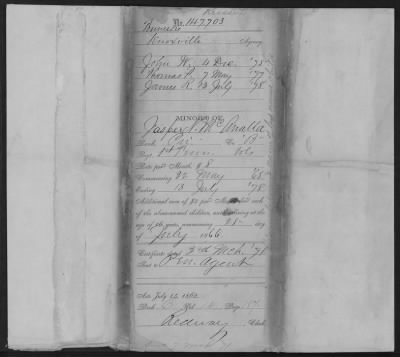 No. 147703
Knoxville Agency
John W. 4 Dec. '75
Thomas P. 7 May '77
James R. 13 July '78
MINORS OF
Jasper N. Mc
Rank, Pri Co. B
Reg. 1st Tenn Vols
Rate per Month, $8
Commencing 22 May '65
Ending 13 July '78
Additional sum of $2 per Month each
of the abovenamed children, and ending at the
age of 16 years, commencing 25th day
of July 1866
Certificate dated 2nd Mch. '71
Sent to Pen. Agent
Act July 14, 1862
Book Vol. Page
Clerk